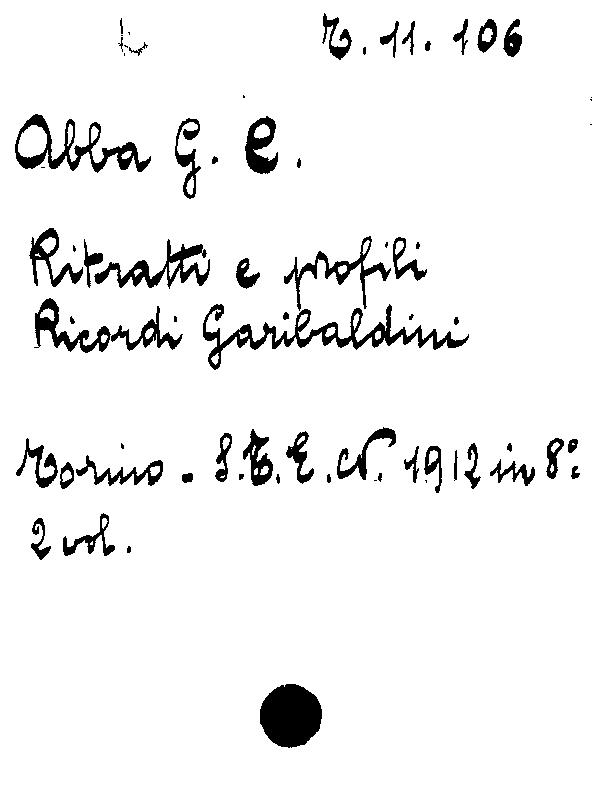 T. 11. 106
Abba G. C.
Ritratti e profili
Ricordi Garibaldini
Torino - S.T.E.N. 1912 in 8°.
2 vol.